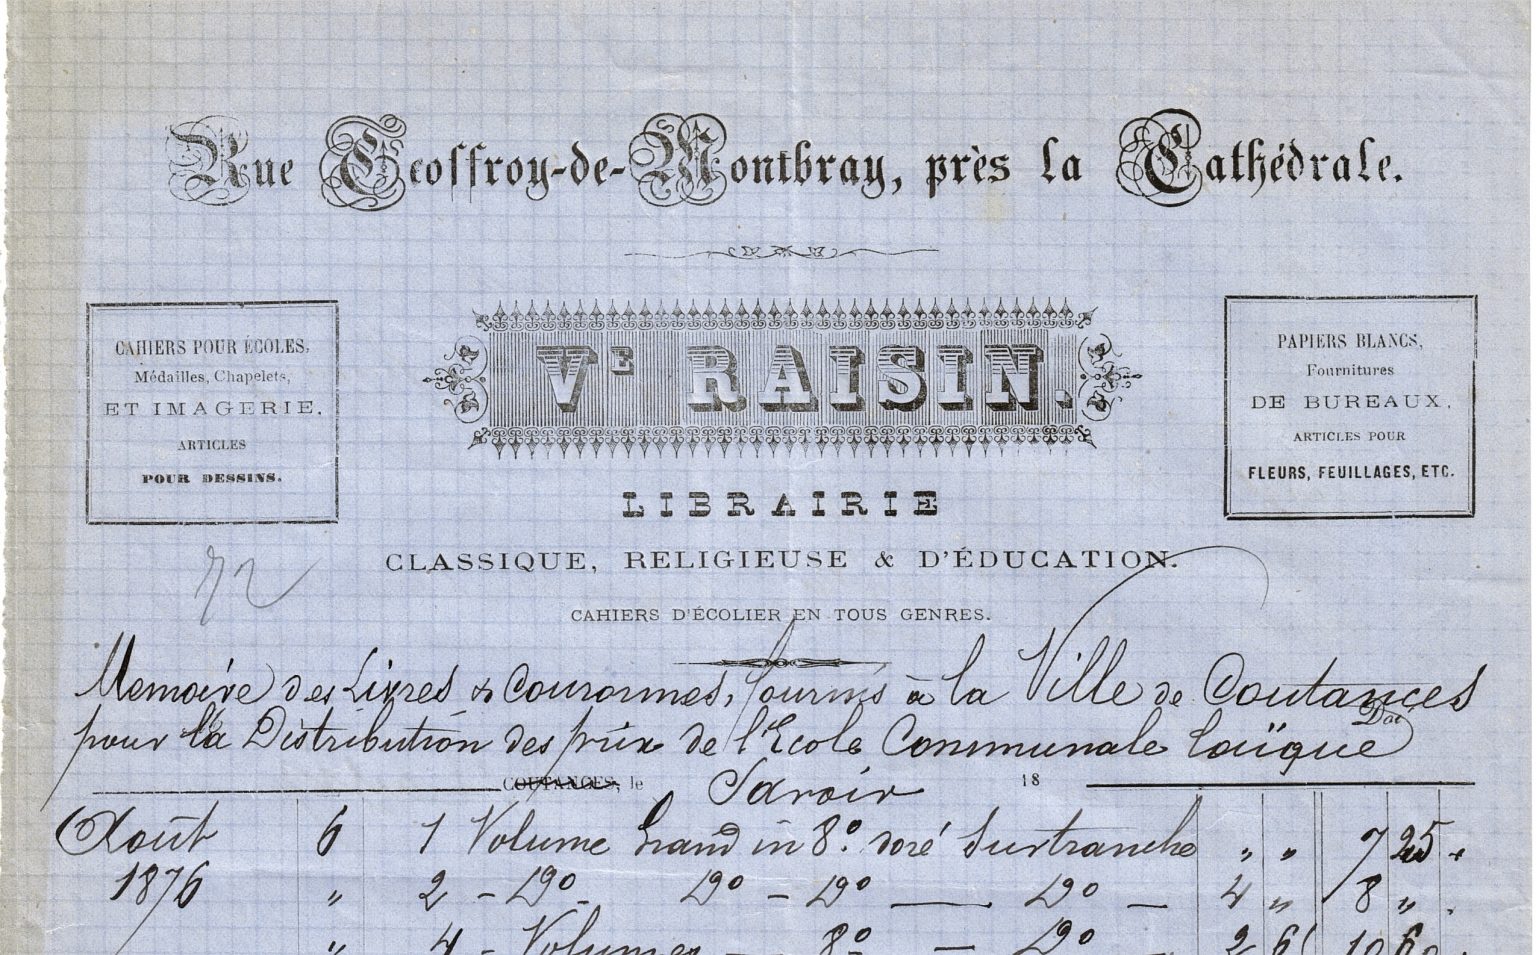 Rue Geoffroy-de-Montbray, près la Cathédrale.
CAHIERS POUR ÉCOLES,
Médailles, Chapelets,
ET IMAGERIE,
ARTICLES
POUR DESSINS.
VE RAISIN.
PAPIERS BLANCS,
Fournitures
DE BUREAUX,
ARTICLES POUR
FLEURS, FEUILLAGES, ETC.
LIBRAIRIE
CLASSIQUE, RELIGIEUSE & D'ÉDUCATION.
CAHIERS D'ÉCOLIER EN TOUS GENRES.
Memoire des Livres & Couronnes, fournis à la Ville de Coutances
pour la Distribution des prix de l'Ecole Communale laïque
COUTANCES, le Savoir 18
Août 6 1 Volume Grand in 8º doré sur tranche " " 7 25
1876 " 2 - Dº Dº - Dº — Dº — 4 " 8 "
" 4 - Volumes — 8º — Dº 2 6 10 60